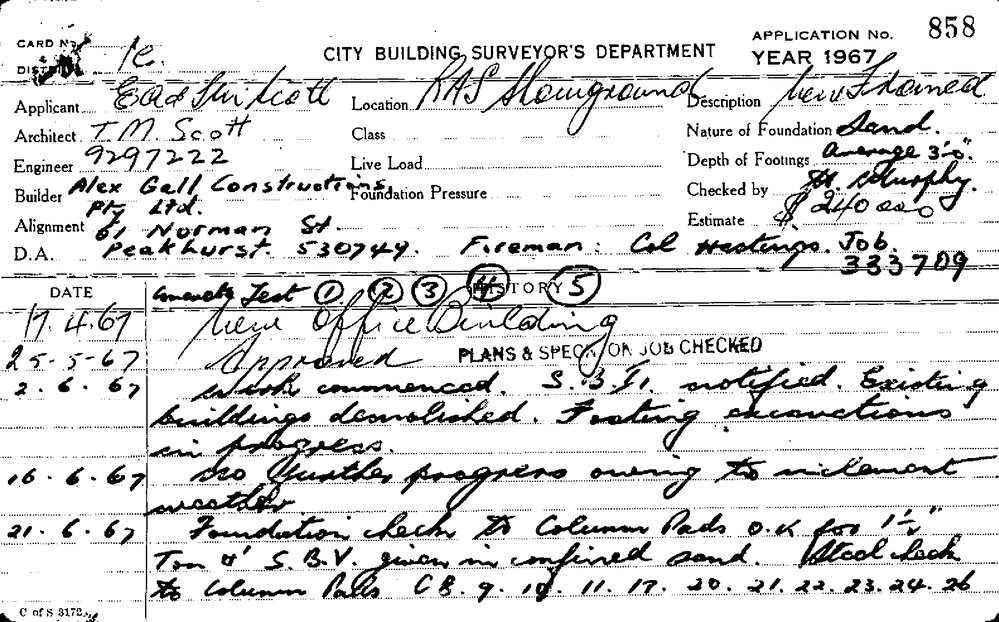 CARD No. 858
DISTRICT 1c. CITY BUILDING SURVEYOR'S DEPARTMENT APPLICATION No.
YEAR 1967
Applicant Scott Location RAS Showground Description New Framed
Architect T.M. Scott Class Nature of Foundation Sand.
Engineer 9297222 Live Load Depth of Footings Average 3'-0".
Builder Alex Gall Constructions Foundation Pressure Checked by Murphy.
Pty Ltd. Estimate $240000
Alignment 61 Norman St.
D.A. Peakhurst. 530749. Foreman: Col Hastings. Job.
333709
DATE Concrete Test 1 2 3 4 HISTORY 5
17.4.67 New Office Building
25-5-67 Approved PLANS & SPECN ON JOB CHECKED
2.6.67 Work commenced. S.B.I. notified. Existing
buildings demolished. Footing excavations
in progress.
16.6.67 No further progress owing to inclement
weather
21.6.67 Foundation check to Column Pads O.K for 1½"
Ton S.B.V. given in confined sand. Steel check
to Column Pads C8. 9. 10. 11. 17. 20. 21. 22. 23. 24. 26
C of S 3172